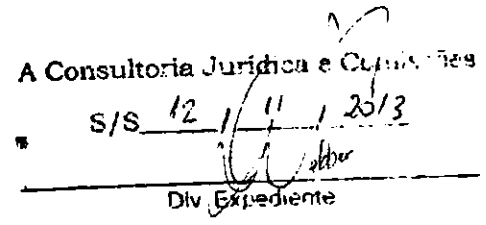 A Consultoria Jurídica e Comissões
S/S 12 / 11 / 2013
Div. Expediente